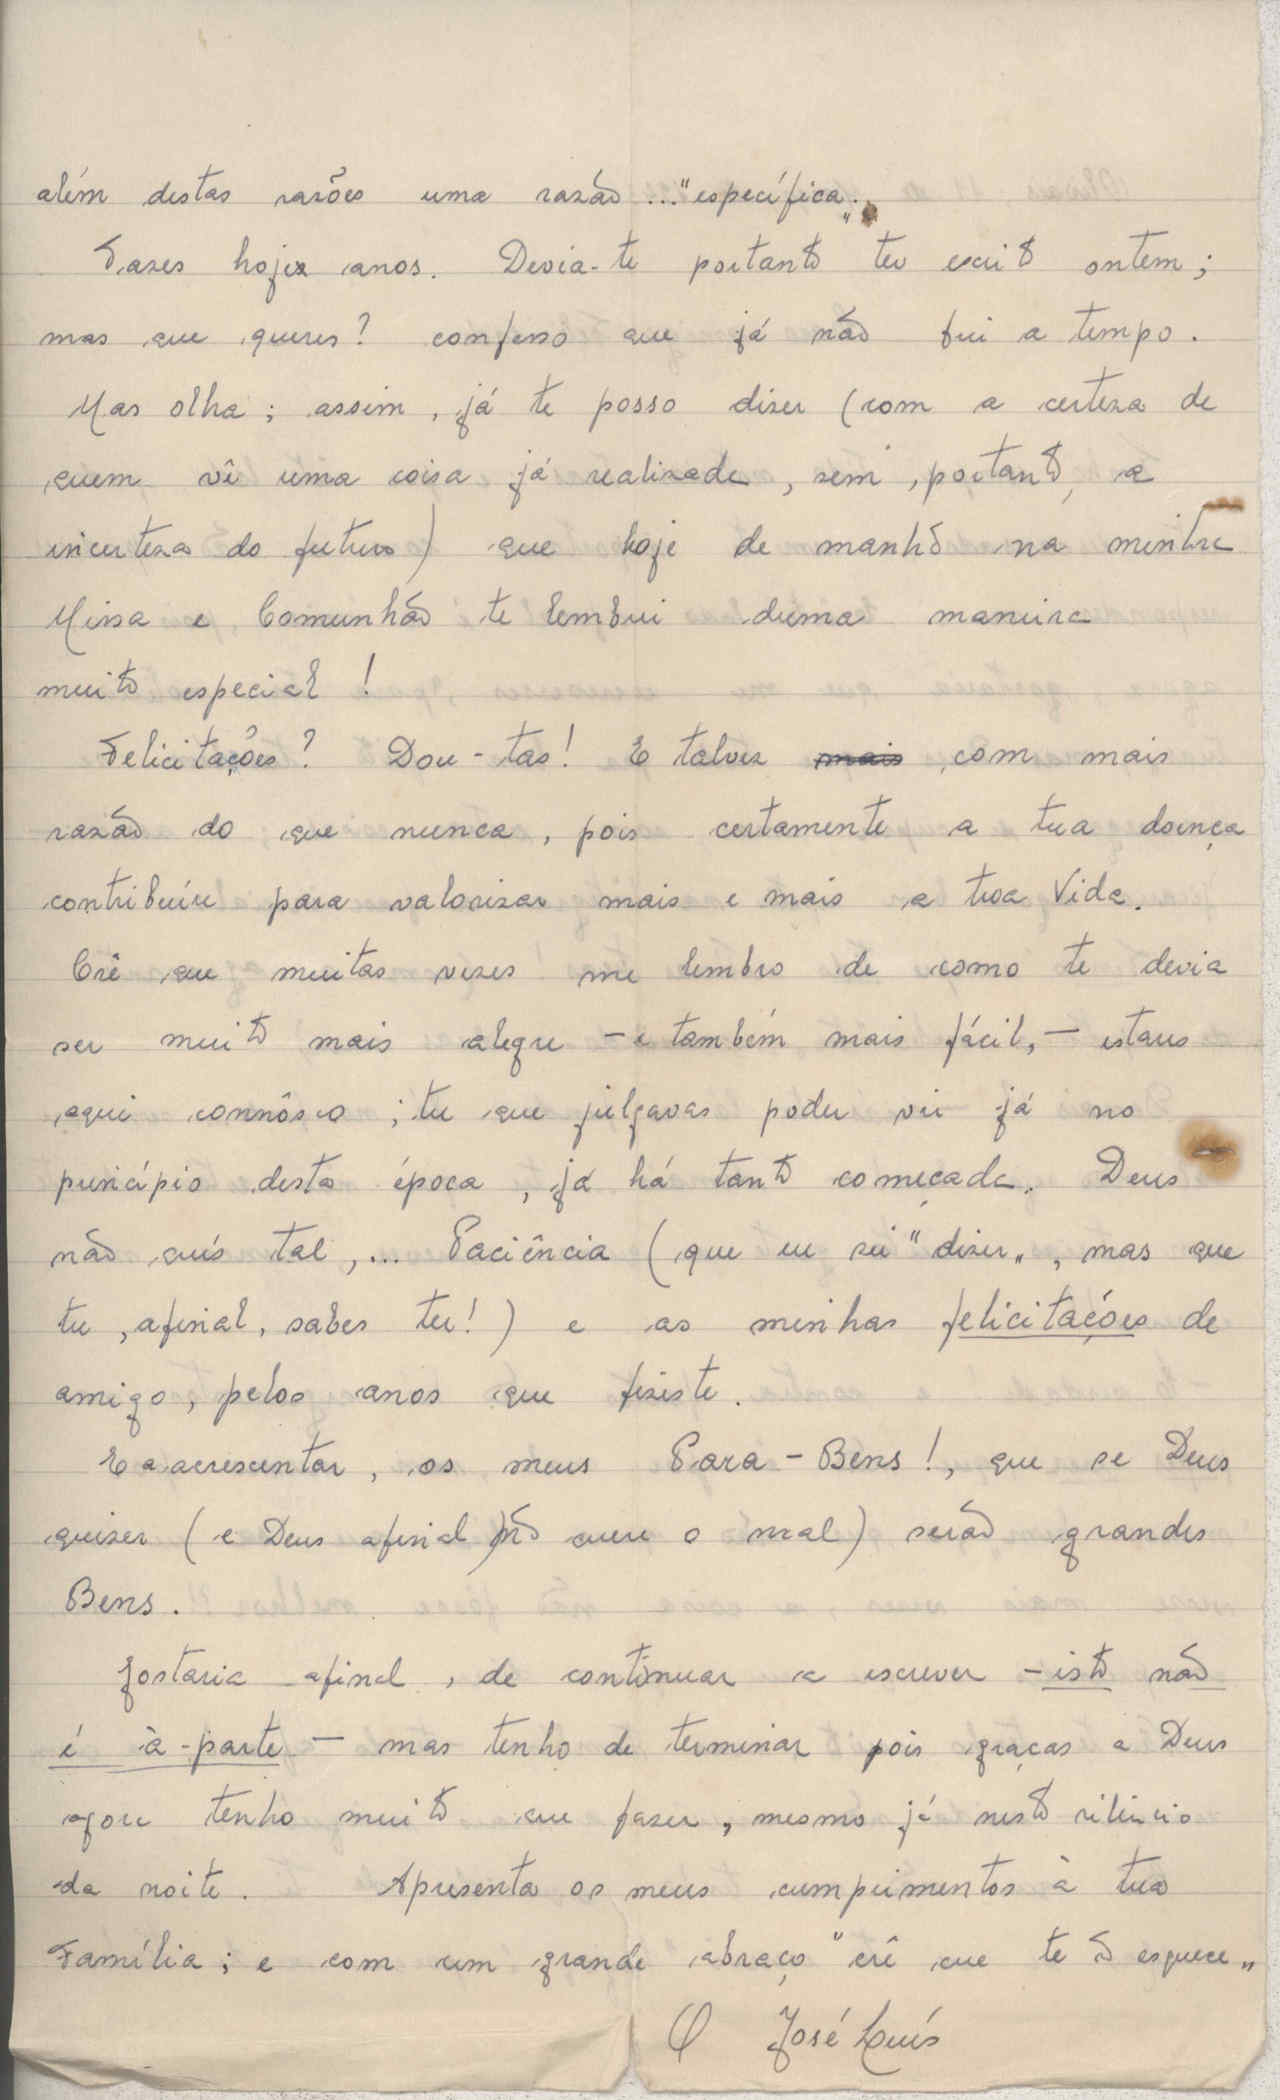 além destas razões uma razão... "específica".
Fazes hoje anos. Devia-te portanto ter escrito ontem;
mas que queres? confesso que já não fui a tempo.
Mas olha; assim, já te posso dizer (com a certeza de
quem vê uma coisa já realizada, sem, portanto, a
incerteza do futuro) que hoje de manhã na minha
Missa e Comunhão te lembrei duma maneira
muito especial!
Felicitações? Dou-tas! E talvez mais com mais
razão do que nunca, pois certamente a tua doença
contribuíu para valorizar mais e mais a tua Vida.
Crê que muitas vezes me lembro de como te devia
ser muito mais alegre - e também mais fácil, - estares
aqui connôsco; tu que julgavas poder vir já no
princípio desta época, já há tanto começada. Deus
não quís tal,... Paciência (que eu sei "dizer", mas que
tu, afinal, sabes ter!) e as minhas felicitações de
amigo, pelos anos que fizeste.
E a acrescentar, os meus Para-Bens!, que se Deus
quizer (e Deus afinal não quere o mal) serão grandes
Bens.
Gostaria afinal, de continuar a escrever - isto não
é à-parte - mas tenho de terminar pois graças a Deus
agora tenho muito que fazer, mesmo já neste silêncio
da noite. Apresenta os meus cumprimentos à tua
Família; e com um grande abraço "crê que te ñ esquece"
O José Luís